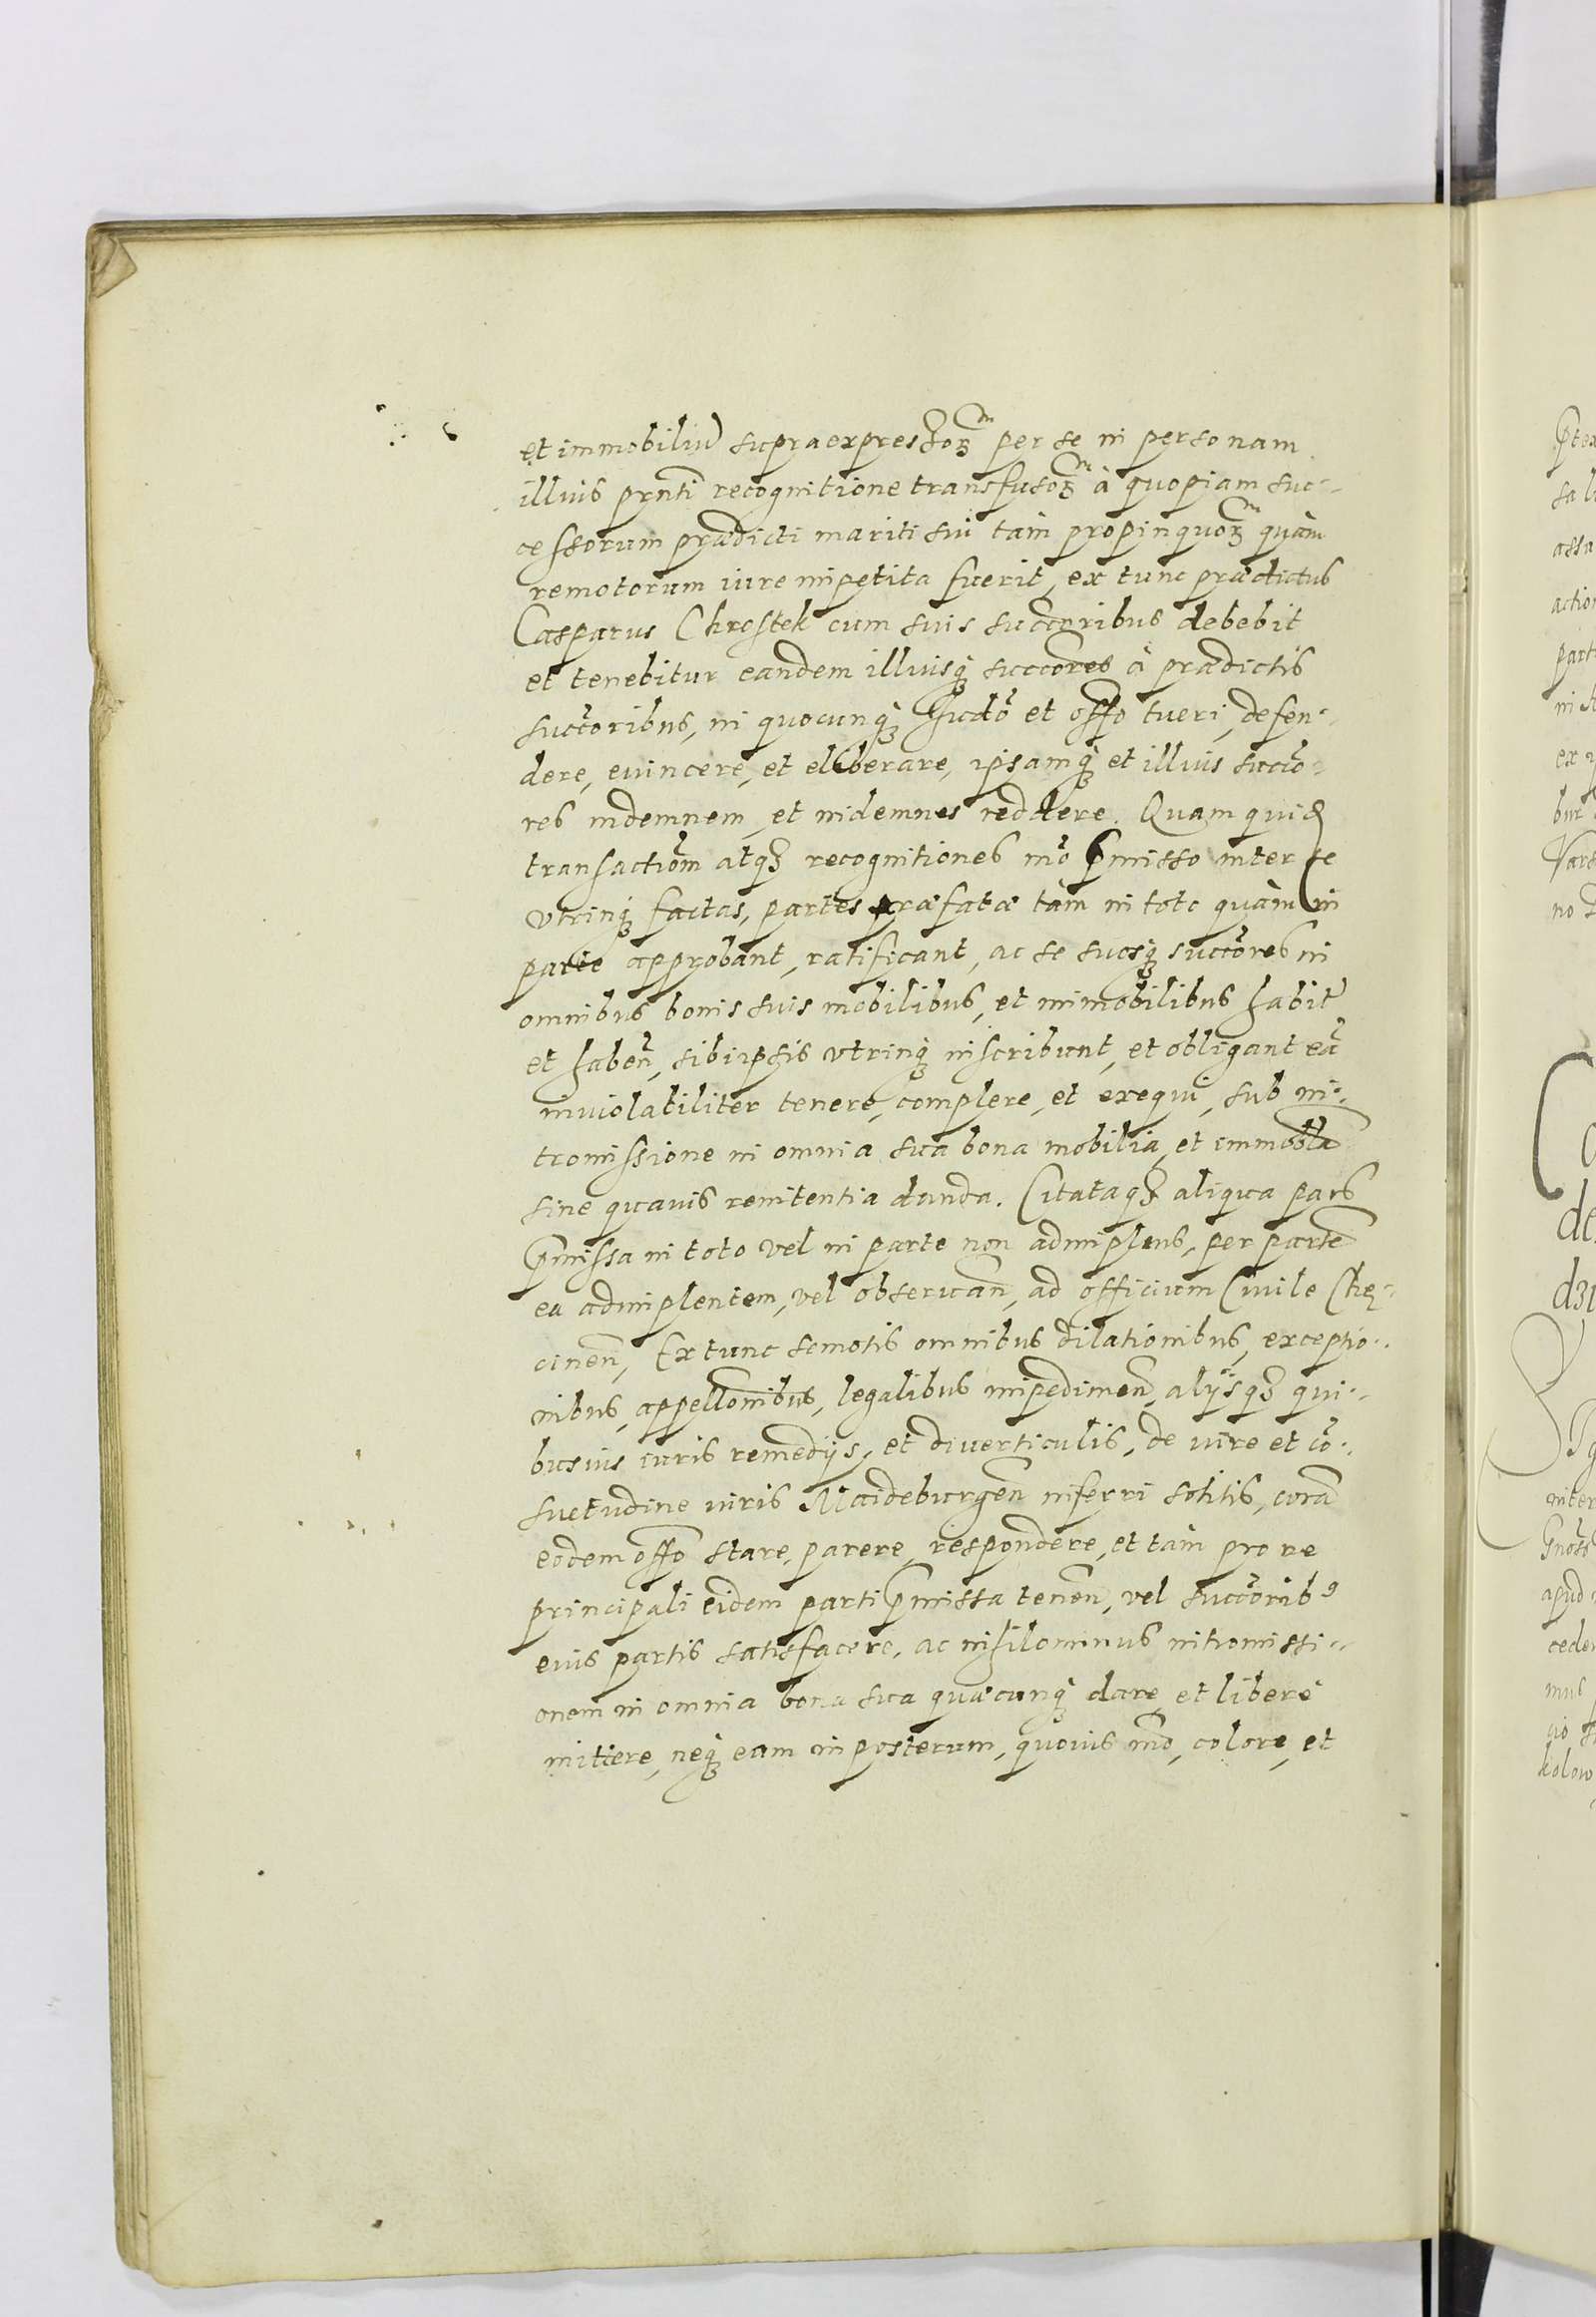 et immobiliũ supraexpressoꝝ per se in personam
illius prnti recognitione transfusoꝝ à quopiam suc-
cessorum prædicti mariti sui tàm propinquoꝝ quàm
remotorum iure impetita fuerit, ex tunc prædictus
Casparus Chrostek cum suis succoribus debebit
et tenebitur eandem illiusq̨ succores à prædictis
succoribus, in quocunq̨ Iudo et offo tueri, defen-
dere, euincere, et eliberare, ipsamq̨ et illius succo-
res indemnem, et indemnes reddere. Quam quid
transactiom atq̨ recognitiones mo p̄misso inter se
vtrinq̨ factas, partes præfatæ tàm in toto quàm in
parte approbant, ratificant, ac se suosq̨ succores in
omnibus bonis suis mobilibus, et immobilibus habit
et haben, sibi ipsis vtrinq̨ inscribunt, et obligant eã
inuiolabiliter tenere, complere, et exequi, sub in-
tromissione in omnia sua bona mobilia, et immobla
sine quauis renitentia danda. Citataq̨ aliqua pars
p̄missa in toto vel in parte non adimplens, per partẽ
ea adimplentem, vel obseruañ, ad officium Ciuile Chę-
cinen, Ex tunc semotis omnibus dilationibus, exceptio-
nibus, appellonibus, legalibus impedimen, alÿsq̨ qui-
busuis iuris remedÿs, et diuerticulis, de iure et cõ-
suetudine iuris Maideburgen inferri solitis, corã
eodem offo stare, parere, respondere, et tàm pro re
principali eidem parti p̄missa tenen, vel succorib9
eius partis satisfacere, ac nihilominus intromissi-
onem in omnia bona sua quæcunq̨ dare, et liberè
mittere, neq̨ eam in posterum, quouis mo, colore, et